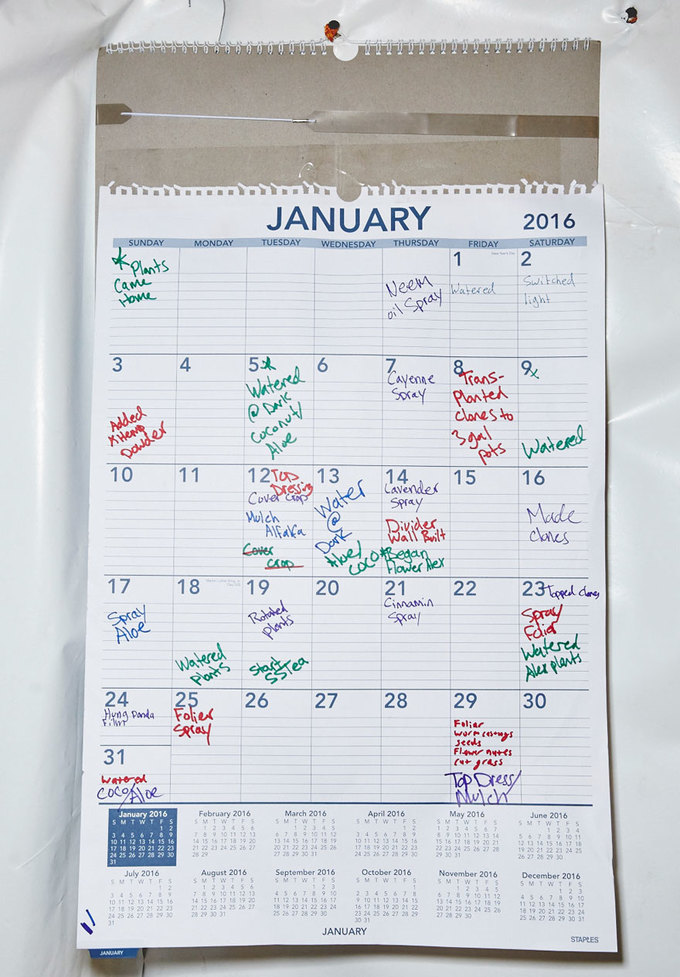 JANUARY 2016
SUNDAY MONDAY TUESDAY WEDNESDAY THURSDAY FRIDAY SATURDAY
* Plants
Came
Home
Neem
oil Spray
1
New Year's Day
Watered
2
Switched
light
3
Added
Powder
4
5 *
Watered
@ Dark
Coconut/
Aloe
6
7
Cayenne
Spray
8
Trans-
Planted
clones to
3 gal
pots
9 x
Watered
10
11
12 Top
Dressing
Cover Crop
Mulch
Alfalfa
Cover
Crop
13
Water
@
Dark
Aloe/
COCO
14
Lavender
Spray
Divider
Wall Built
* Began
Flower Alex
15
16
Made
clones
17
Spray
Aloe
18
Watered
Plants
19
Rotated
Plants
Start
SSTea
20
21
Cinnamin
Spray
22
23 Topped clones
Spray
Folier
Watered
Alex plants
24
Hung Panda
Film
25
Folier
Spray
26
27
28
29
Folier
worm castings
seeds
Flower nutes
cut grass
Top Dress/
Mulch
30
31
Watered
COCO/Aloe
January 2016
S M T W T F S
1 2
3 4 5 6 7 8 9
10 11 12 13 14 15 16
17 18 19 20 21 22 23
24 25 26 27 28 29 30
31
February 2016
S M T W T F S
1 2 3 4 5 6
7 8 9 10 11 12 13
14 15 16 17 18 19 20
21 22 23 24 25 26 27
28 29
March 2016
S M T W T F S
1 2 3 4 5
6 7 8 9 10 11 12
13 14 15 16 17 18 19
20 21 22 23 24 25 26
27 28 29 30 31
April 2016
S M T W T F S
1 2
3 4 5 6 7 8 9
10 11 12 13 14 15 16
17 18 19 20 21 22 23
24 25 26 27 28 29 30
May 2016
S M T W T F S
1 2 3 4 5 6 7
8 9 10 11 12 13 14
15 16 17 18 19 20 21
22 23 24 25 26 27 28
29 30 31
June 2016
S M T W T F S
1 2 3 4
5 6 7 8 9 10 11
12 13 14 15 16 17 18
19 20 21 22 23 24 25
26 27 28 29 30
July 2016
S M T W T F S
1 2
3 4 5 6 7 8 9
10 11 12 13 14 15 16
17 18 19 20 21 22 23
24 25 26 27 28 29 30
31
August 2016
S M T W T F S
1 2 3 4 5 6
7 8 9 10 11 12 13
14 15 16 17 18 19 20
21 22 23 24 25 26 27
28 29 30 31
September 2016
S M T W T F S
1 2 3
4 5 6 7 8 9 10
11 12 13 14 15 16 17
18 19 20 21 22 23 24
25 26 27 28 29 30
October 2016
S M T W T F S
1
2 3 4 5 6 7 8
9 10 11 12 13 14 15
16 17 18 19 20 21 22
23 24 25 26 27 28 29
30 31
November 2016
S M T W T F S
1 2 3 4 5
6 7 8 9 10 11 12
13 14 15 16 17 18 19
20 21 22 23 24 25 26
27 28 29 30
December 2016
S M T W T F S
1 2 3
4 5 6 7 8 9 10
11 12 13 14 15 16 17
18 19 20 21 22 23 24
25 26 27 28 29 30 31
JANUARY
STAPLES
JANUARY